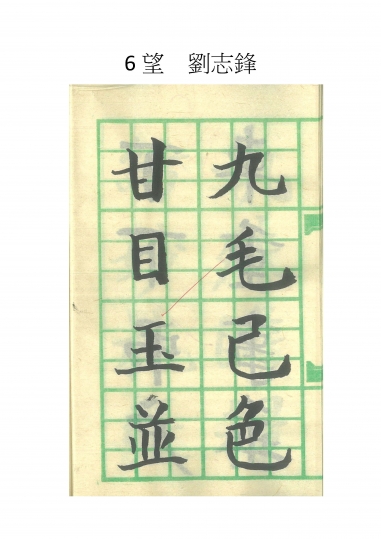 6望 劉志鋒
九毛己色
甘目玉並